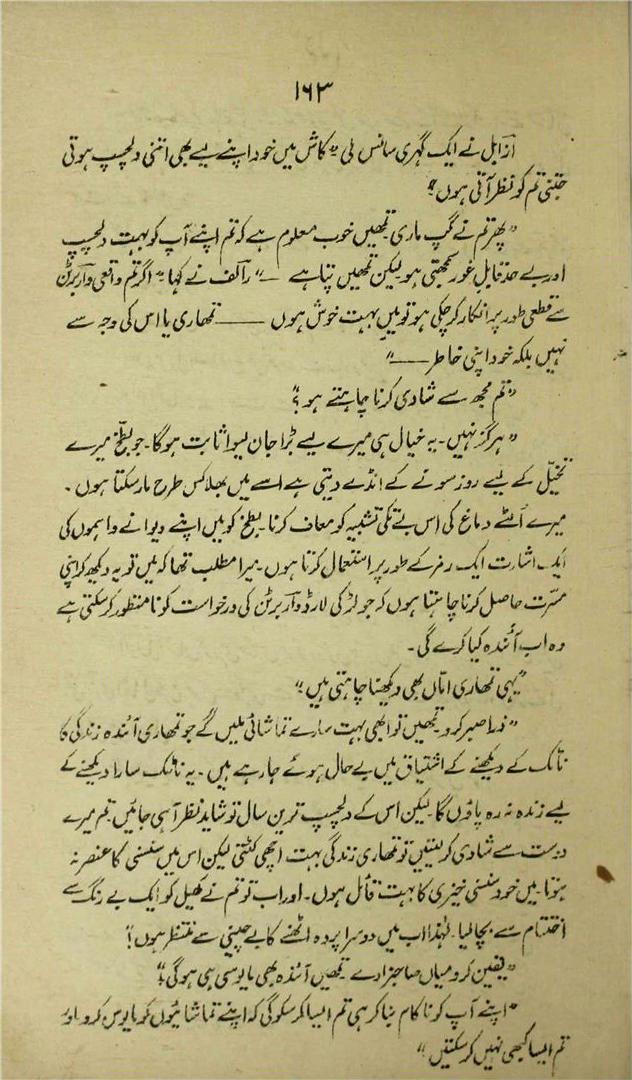 ۱۶۳
ازابل نے ایک گہری سانس لی "کاش میں خود اپنے لیے بھی اتنی دلچسپ ہوتی
جتنی تم کو نظر آتی ہوں"
"پھر تم نے گپ ماری۔ تمھیں خوب معلوم ہے کہ تم اپنے آپ کو بہت دلچسپ
اور بے حد قابلِ غور سمجھتی ہو لیکن تمھیں پتا ہے ——" رالف نے کہا "اگر تم واقعی واربرٹن
سے قطعی طور پر انکار کر چکی ہو تو میں بہت خوش ہوں —— تمھاری یا اس کی وجہ سے
نہیں بلکہ خود اپنی خاطر ——"
"تم مجھ سے شادی کرنا چاہتے ہو؟"
"ہرگز نہیں۔ یہ خیال ہی میرے لیے بڑا جان لیوا ثابت ہوگا۔ جو بطخ میرے
تخیّل کے لیے روز سونے کے انڈے دیتی ہے اسے میں بھلا کس طرح مار سکتا ہوں۔
میرے اُلٹے دماغ کی اس بے تکی تشبیہ کو معاف کرنا۔ بطخ کو میں اپنے دیوانے واہموں کی
ایک اشارت ایک رمز کے طور پر استعمال کرتا ہوں۔ میرا مطلب تھا کہ میں تو یہ دیکھ کر اپنی
مسرّت حاصل کرنا چاہتا ہوں کہ جو لڑکی لارڈ واربرٹن کی درخواست کو نامنظور کر سکتی ہے
وہ اب آئندہ کیا کرے گی۔
"یہی تمھاری امّاں بھی دیکھنا چاہتی ہیں"
"ذرا صبر کرو۔ تمھیں تو ابھی بہت سارے تماشائی ملیں گے جو تمھاری آئندہ زندگی کا
ناٹک کے دیکھنے کے اشتیاق میں بے حال ہوئے جا رہے ہیں۔ یہ ناٹک سارا دیکھنے کے
لیے زندہ نہ رہ پاؤں گا۔ لیکن اس کے دلچسپ ترین سال تو شاید نظر آ ہی جائیں۔ تم میرے
دوست سے شادی کر لیتیں تو تمھاری زندگی بہت اچھی کٹتی لیکن اس میں سنسنی کا عنصر نہ
ہوتا۔ میں خود سنسنی خیزی کا بہت قائل ہوں۔ اور اب تو تم نے کھیل کو ایک بے رنگ سے
اختتام سے بچا لیا۔ لہٰذا اب میں دوسرا پردہ اٹھنے کا بے چینی سے منتظر ہوں!"
"یقین کرو میاں صاحبزادے۔ تمھیں آئندہ بھی مایوسی ہی ہوگی۔"
"اپنے آپ کو ناکام بنا کر ہی تم ایسا کر سکو گی کہ اپنے تماشائیوں کو مایوس کرو اور
تم ایسا کبھی نہیں کر سکتیں"